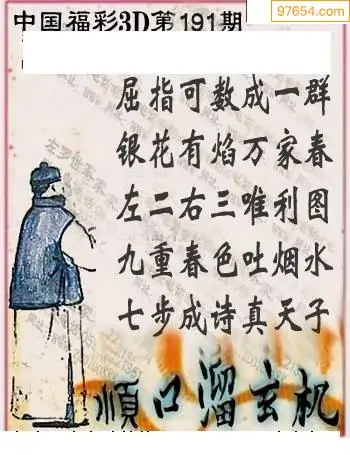 中国福彩3D第191期
97654.com
屈指可数成一群
银花有焰万家春
左二右三唯利图
九重春色吐烟水
七步成诗真天子
順口溜玄机